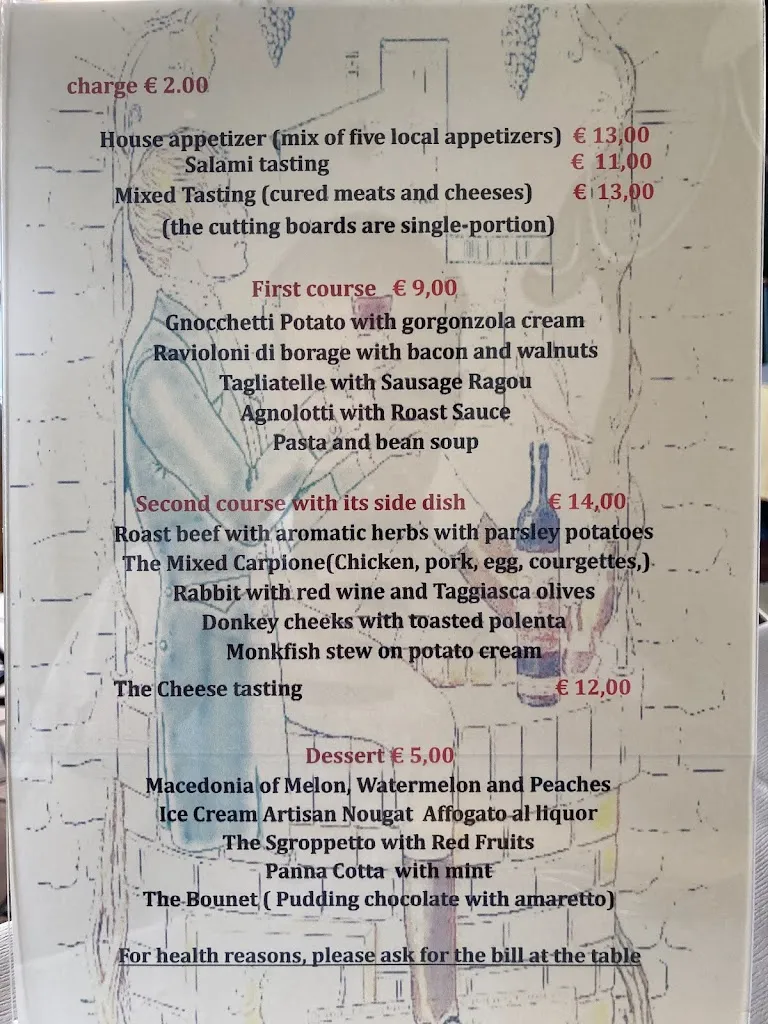 charge € 2.00
House appetizer (mix of five local appetizers) € 13,00
Salami tasting € 11,00
Mixed Tasting (cured meats and cheeses) € 13,00
(the cutting boards are single-portion)
First course € 9,00
Gnocchetti Potato with gorgonzola cream
Ravioloni di borage with bacon and walnuts
Tagliatelle with Sausage Ragou
Agnolotti with Roast Sauce
Pasta and bean soup
Second course with its side dish € 14,00
Roast beef with aromatic herbs with parsley potatoes
The Mixed Carpione(Chicken, pork, egg, courgettes,)
Rabbit with red wine and Taggiasca olives
Donkey cheeks with toasted polenta
Monkfish stew on potato cream
The Cheese tasting € 12,00
Dessert € 5,00
Macedonia of Melon, Watermelon and Peaches
Ice Cream Artisan Nougat Affogato al liquor
The Sgroppetto with Red Fruits
Panna Cotta with mint
The Bounet ( Pudding chocolate with amaretto)
For health reasons, please ask for the bill at the table